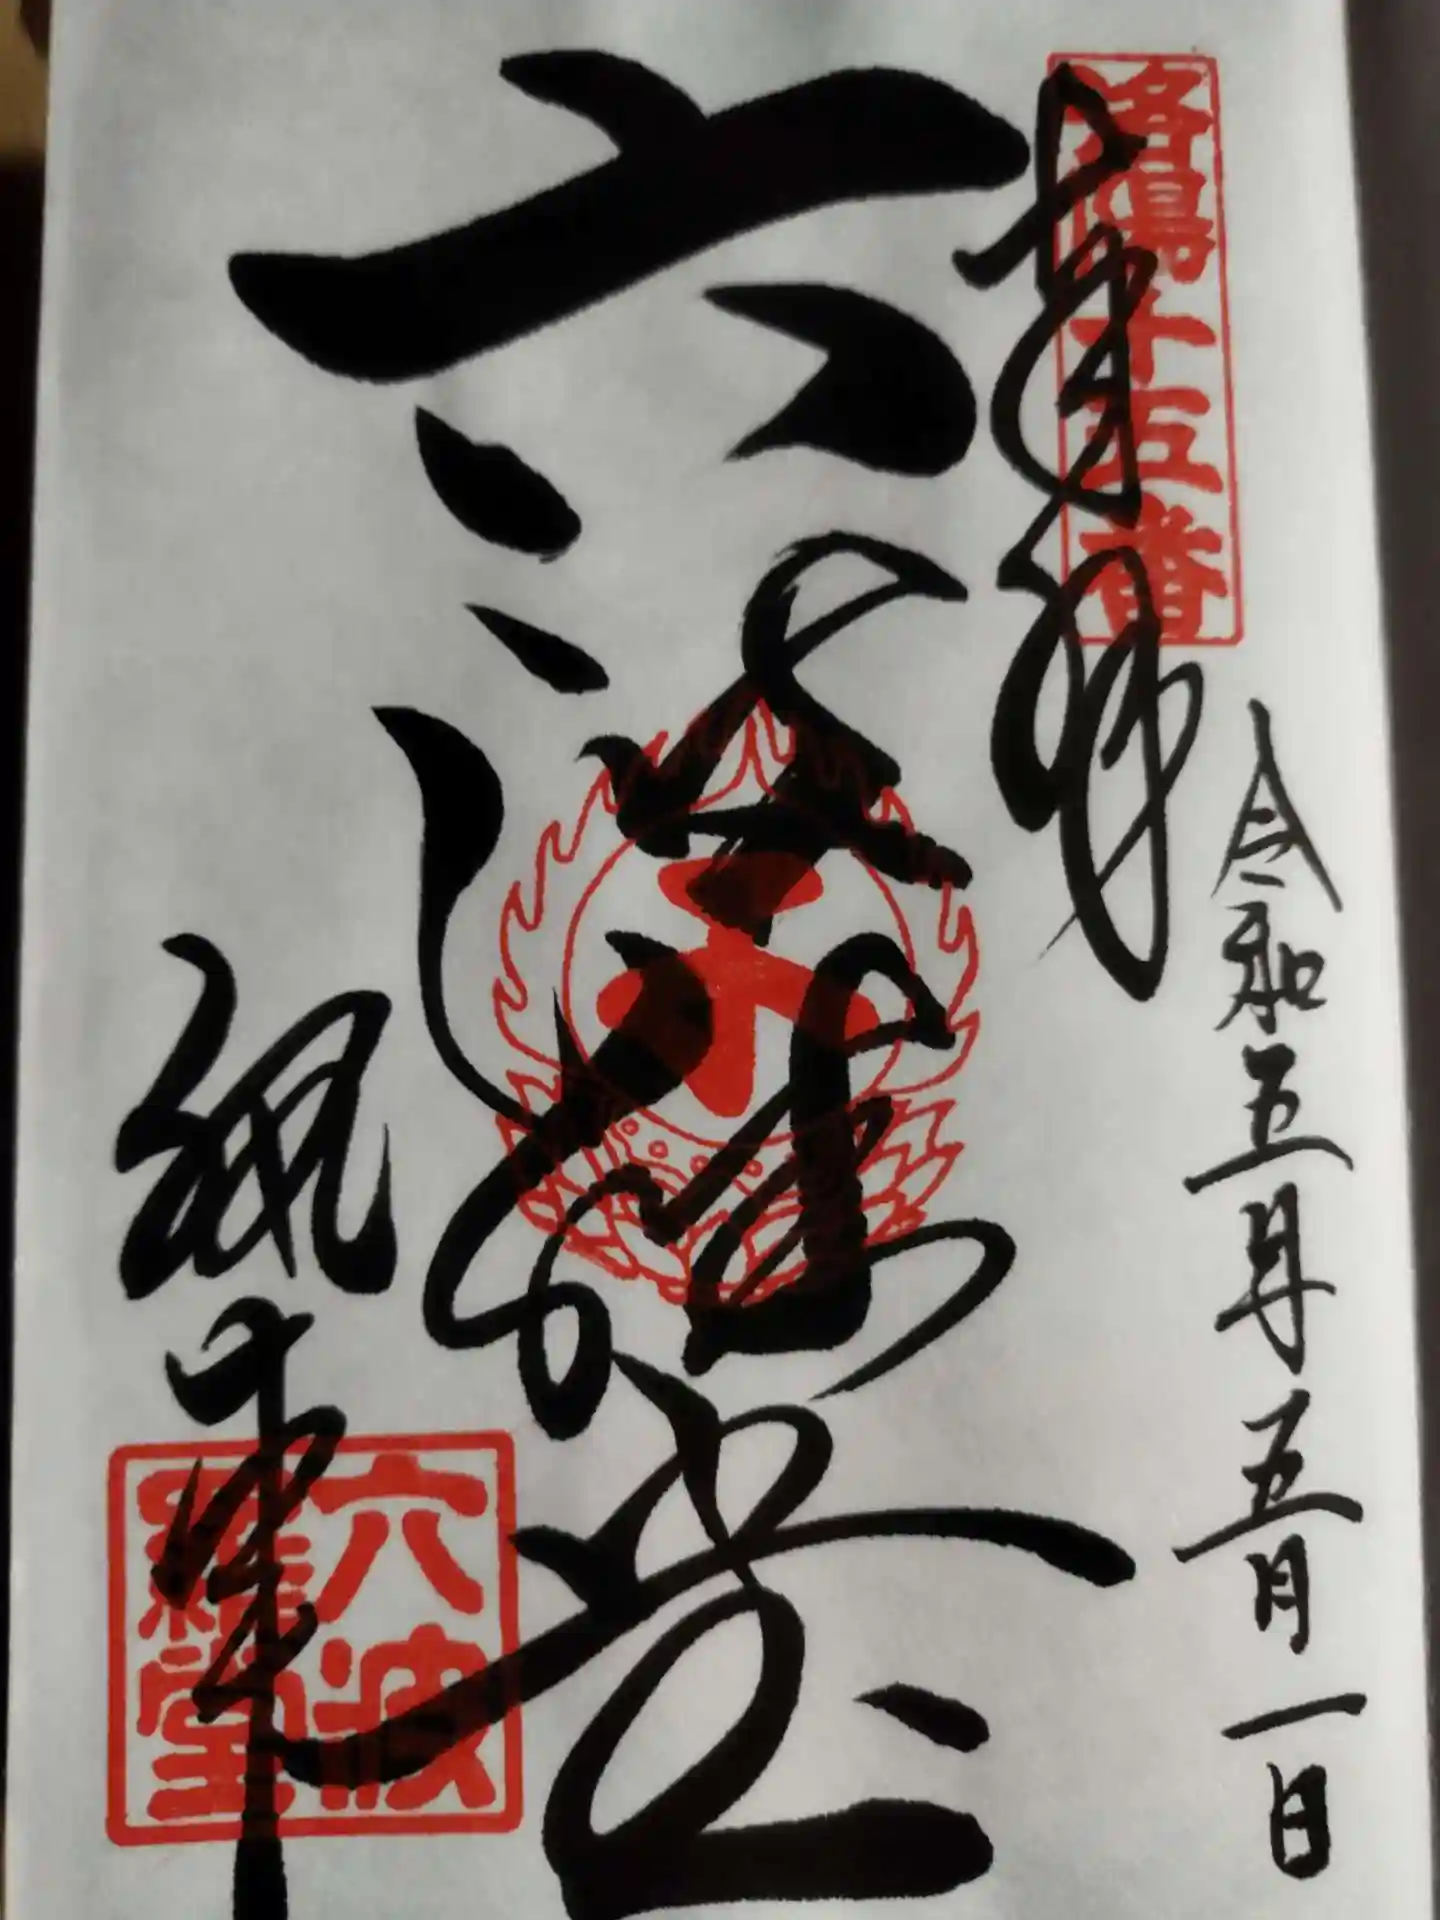 洛陽十五番
奉拝
令和五年五月一日
六波羅堂
六波
羅堂